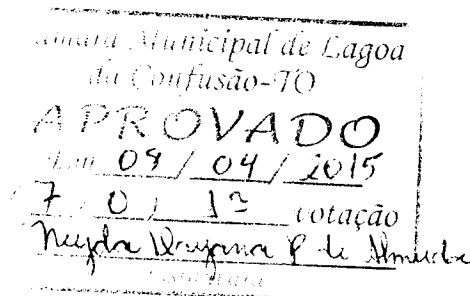 Câmara Municipal de Lagoa
da Confusão-TO
APROVADO
Em 09 / 04 / 2015
7 / 0 / 1ª votação
de Almeida